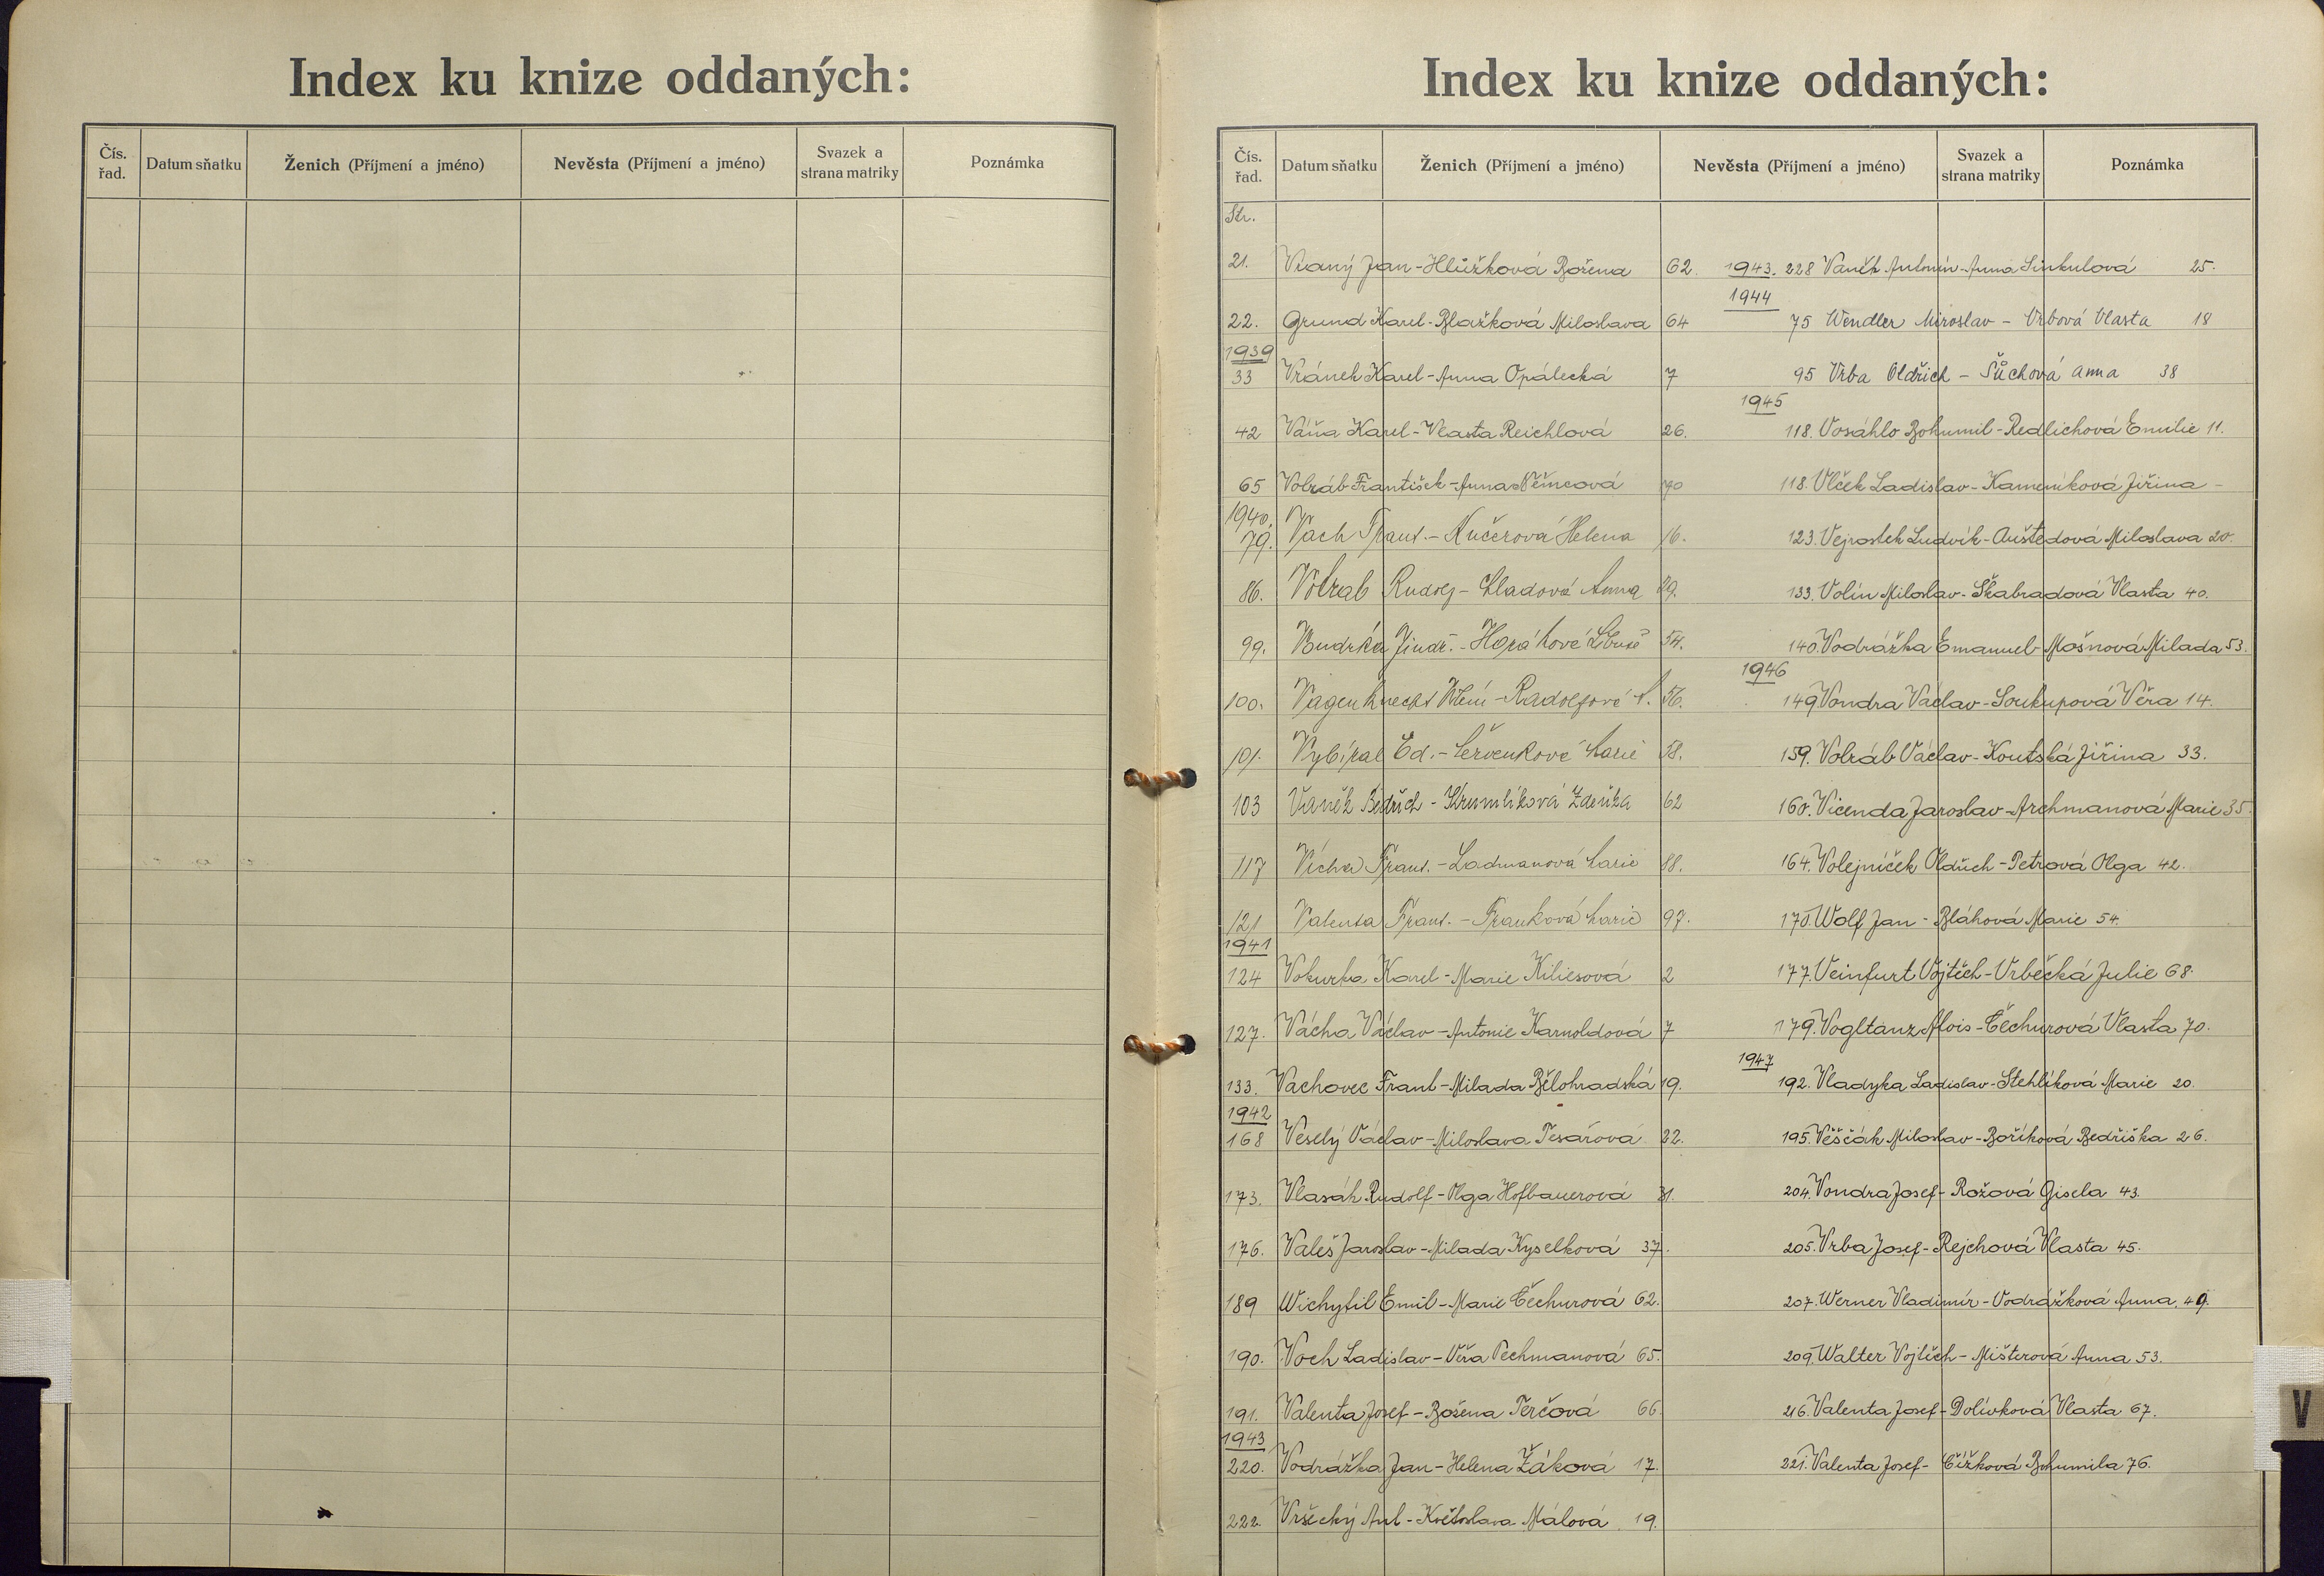 Index ku knize oddaných:
Čís. řad. Datum sňatku Ženich (Příjmení a jméno) Nevěsta (Příjmení a jméno) Svazek a strana matriky Poznámka
Index ku knize oddaných:
Čís. řad. Datum sňatku Ženich (Příjmení a jméno) Nevěsta (Příjmení a jméno) Svazek a strana matriky Poznámka
Str.
21. Vraný Jan - Hlůžková Božena 62.
22. Grund Karel - Blažková Miloslava 64
1939
33 Vránek Karel - Anna Opálecká 7
42 Váňa Karel - Vlasta Reichlová 26.
65 Volráb František - Anna Němcová 70
1940.
79. Vach Frant. - Kučerová Helena 16.
86. Votrab Rudolf - Hladová Anna 29.
99. Vudrka Jindř. - 54.
100. Vagenknecht Vilém - Radolfová 56.
101. Vybíral Ed. - Červenková Marie 58.
103 Vaněk Bedřich - Krumlíková Zdeňka 62
117 Vícha Frant. - Ladmanová Marie 88.
121 Valenta Frant. - Franková Marie 97.
1941
124 Vokurka Karel - Marie Kiliesová 2
127. Vácha Václav - Antonie Karnoldová 7
133. Vachovec Frant - Milada Bělohradská 19.
1942
168 Veselý Václav - Miloslava Tesařová 22.
173. Vlasák Rudolf - Olga Hofbauerová 31.
176. Valeš Jaroslav - Milada Kyselková 37.
189 Wichytil Emil - Marie Čechurová 62.
190. Voch Ladislav - Věra Pechmanová 65.
191. Valenta Josef - Božena Terčová 66
1943
220. Vodrážka Jan - Helena Žáková 17.
222. Vršecký Ant - Květoslava Málová 19.
1943. 228 Vaněk Antonín - Anna Sinkulová 25.
1944
75 Wendler Miroslav - Vrbová Vlasta 18
95 Vrba Oldřich - Šůchová Anna 38
1945
118. Vosáhlo Bohumil - Redlichová Emilie 11.
118. Vlček Ladislav - Kameníková Jiřina -
123. Vejrostek Ludvík - Auštedová Miloslava 20.
133. Volín Miloslav - Škabradová Vlasta 40.
140. Vodrážka Emanuel - Mošnová Milada 53.
1946
149 Vondra Václav - Soukupová Věra 14.
159. Volráb Václav - Koutská Jiřina 33.
160. Vicenda Jaroslav - Archmanová Marie 35.
164. Volejníček Oldřich - Petrová Olga 42.
170. Wolf Jan - Bláhová Marie 54.
177. Veinfurt Vojtěch - Vrbecká Julie 68.
179. Vogltanz Alois - Čechurová Vlasta 70.
1947
192. Vladyka Ladislav - Stehlíková Marie 20.
195. Věščák Miloslav - Boříková Bedřiška 26.
204. Vondra Josef - Rožová Gisela 43.
205. Vrba Josef - Rejchová Vlasta 45.
207. Werner Vladimír - Vodrážková Anna. 49.
209. Walter Vojtěch - Mišterová Anna 53.
216. Valenta Josef - Dolívková Vlasta 67.
221. Valenta Josef - Čížková Bohumila 76.
V